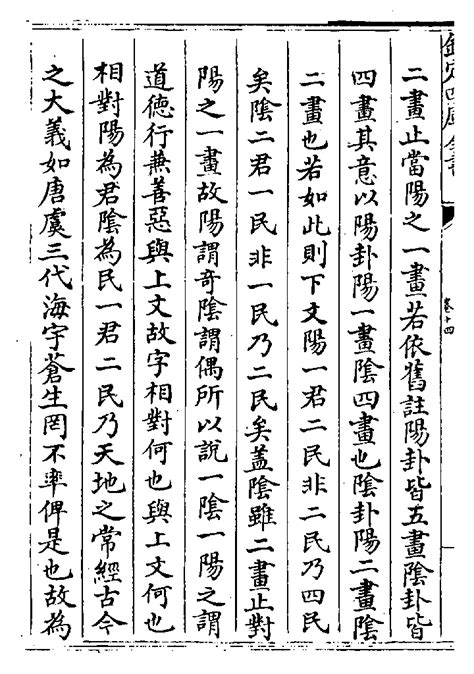 欽定四庫全書
卷十四
二畫止當陽之一畫若依舊註陽卦皆五畫陰卦皆
四畫其意以陽卦陽一畫陰四畫也陰卦陽二畫陰
二畫也若如此則下文陽一君二民非二民乃四民
矣陰二君一民非一民乃二民矣蓋陰雖二畫止對
陽之一畫故陽謂奇陰謂偶所以說一陰一陽之謂
道德行兼善惡與上文故字相對何也與上文何也
相對陽為君陰為民一君二民乃天地之常經古今
之大義如唐虞三代海宇蒼生罔不率俾是也故為